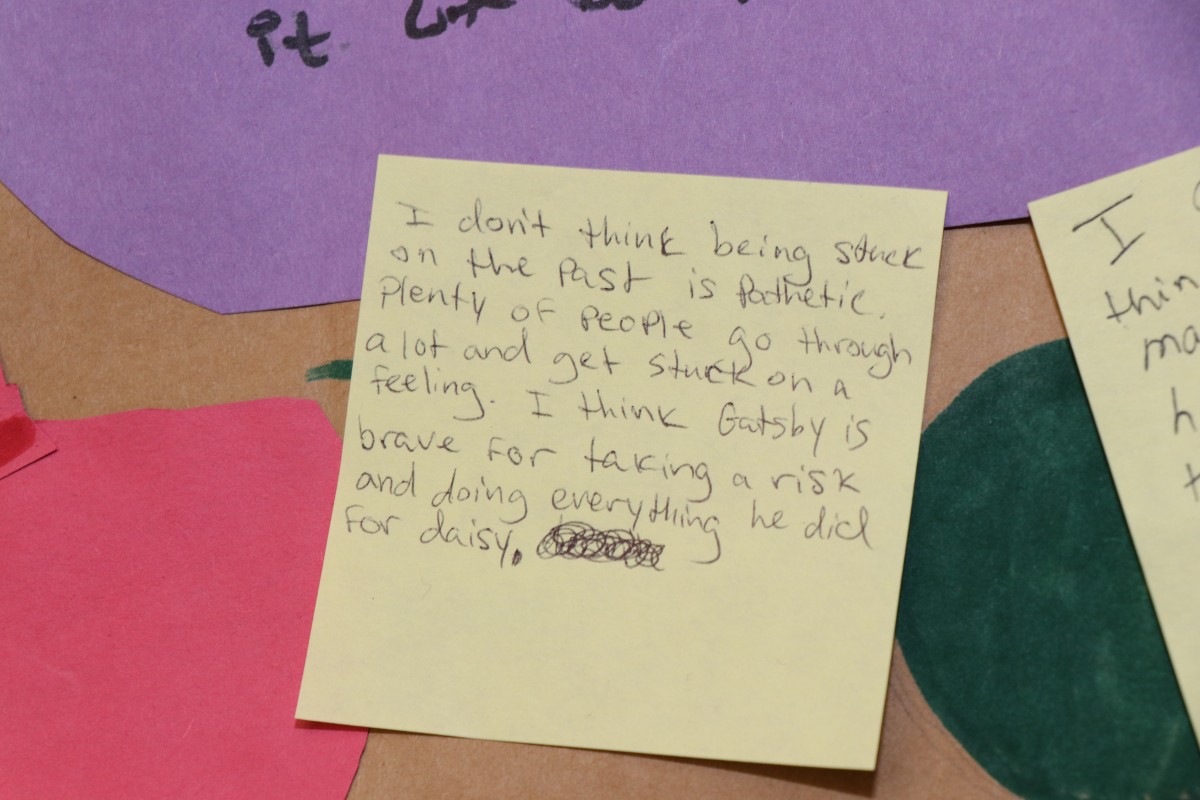 it
I don't think being stuck
on the past is Pathetic.
Plenty of people go through
a lot and get stuck on a
feeling. I think Gatsby is
brave for taking a risk
and doing everything he did
for daisy.
I
thin
ma
h
t